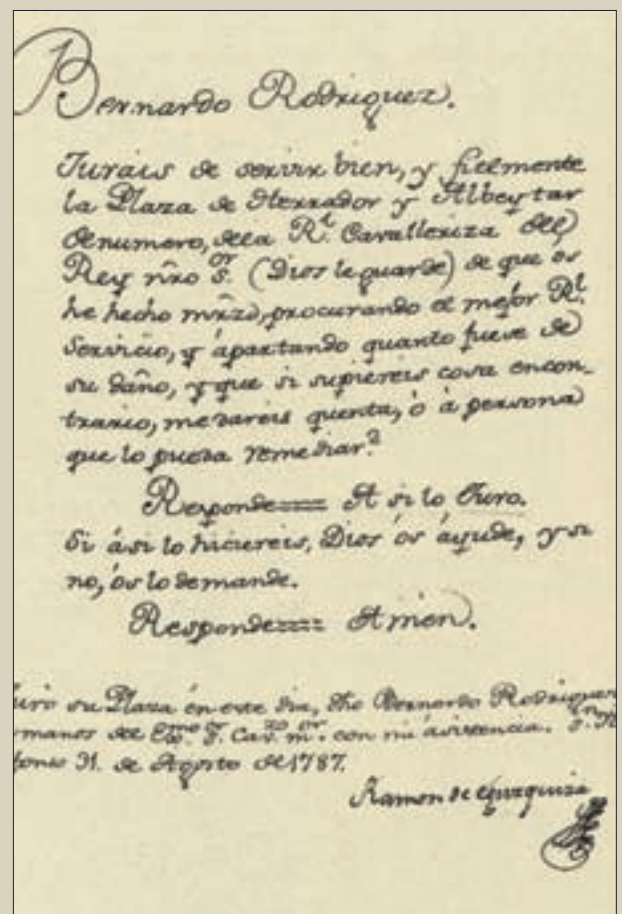 Bernardo Rodriguez.
Jurais de servir bien, y fielmente
la Plaza de Herrador y Albeytar
de numero, de la Rl. Cavalleriza del
Rey nro Sor. (Dios le guarde) de que ós
he hecho mrzd, procurando el mejor Rl.
Servicio, y ápartando quanto fuese de
su daño, y que si supiereis cosa encon-
trario, me dareis quenta, ó à persona
que lo pueda remediar?
Responde== A si lo Juro.
Si ási lo hiciereis, Dios ós áyude, y si
no, ós lo demande.
Responde== Amen.
uro su Plaza én este dia, dho Bernardo Rodriguez
manos del Exmo. Sor. Cavzo. mor. con mi ásistencia.
fonso 31. de Agosto de 1787.
Ramon de